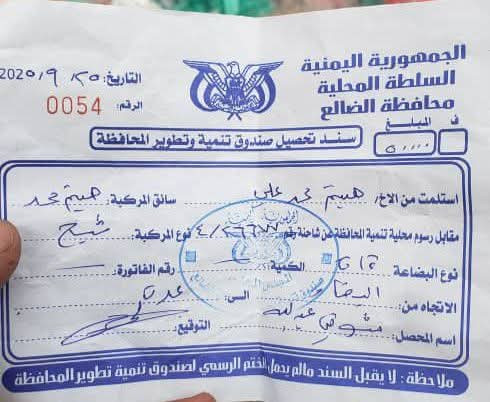 الجمهورية اليمنية
السلطة المحلية
محافظة الضالع
التاريخ: ٢٥ / ٩ / 2020
الرقم: 0054
المبلغ ف
سند تحصيل صندوق تنمية وتطوير المحافظة
استلمت من الاخ/ هيثم محمد علي سائق المركبة: هيثم محمد
مقابل رسوم محلية تنمية المحافظة عن شاحنة رقم نوع المركبة:
نوع البضاعة الكمية رقم الفاتورة:
الاتجاه من: البيضاء الى: عدن
اسم المحصل: شوقي عبدالله التوقيع
ملاحظة: لا يقبل السند مالم يحمل الختم الرسمي لصندوق تنمية تطوير المحافظة